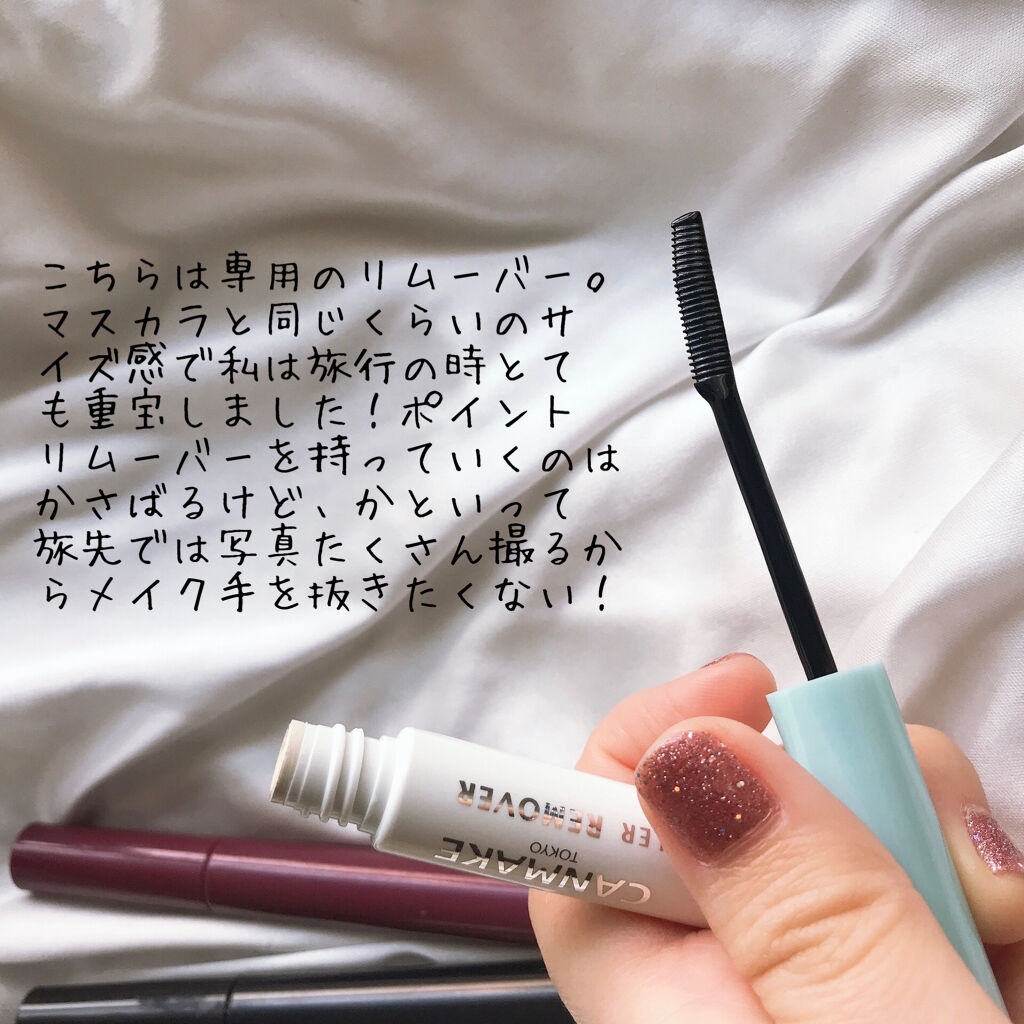 こちらは専用のリムーバー。
マスカラと同じくらいのサ
イズ感で私は旅行の時とて
も重宝しました!ポイント
リムーバーを持っていくのは
かさばるけど、かといって
旅先では写真たくさん撮るか
らメイク手を抜きたくない!
CANMAKE
TOKYO
LER REMOVER